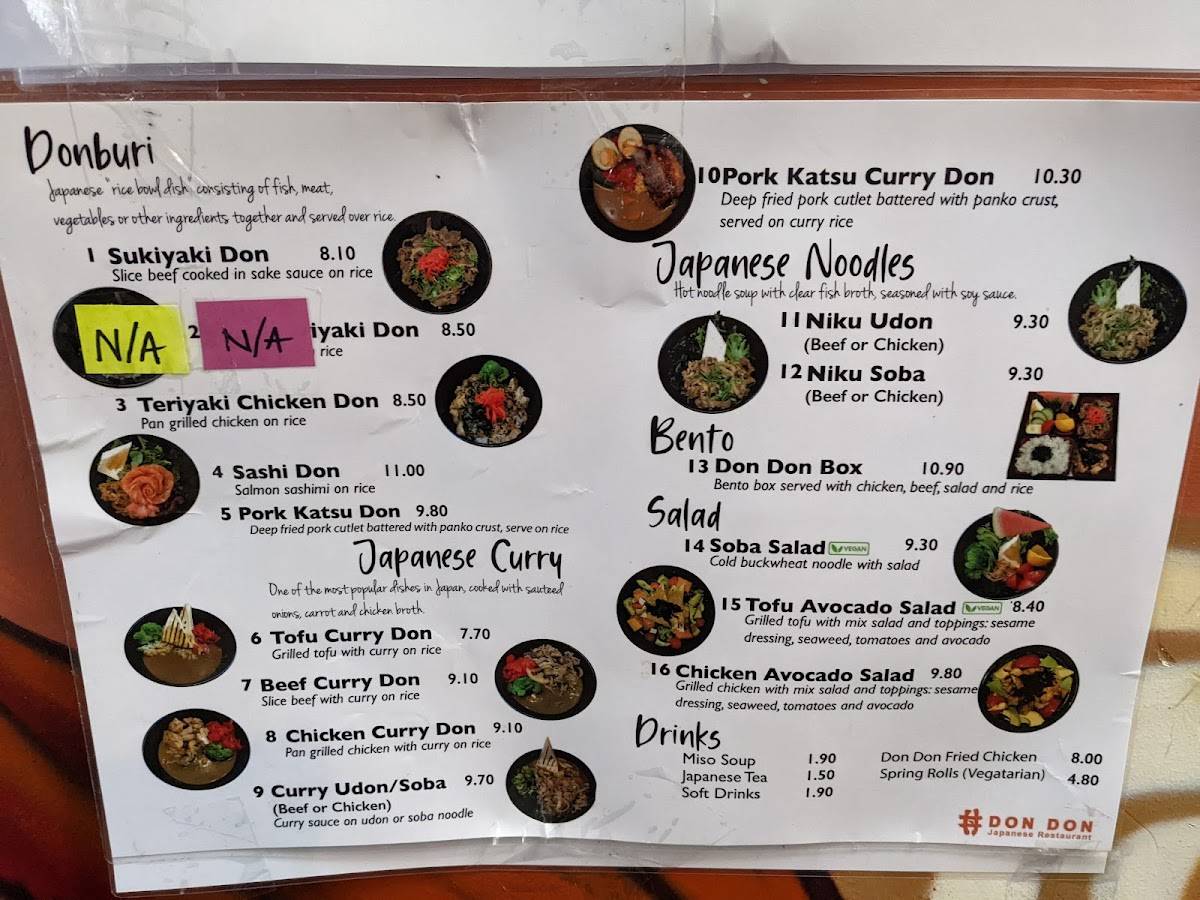 Donburi
Japanese "rice bowl dish" consisting of fish, meat,
vegetables or other ingredients together and served over rice.
1 Sukiyaki Don 8.10
Slice beef cooked in sake sauce on rice
N/A
2 N/A iyaki Don 8.50
rice
3 Teriyaki Chicken Don 8.50
Pan grilled chicken on rice
4 Sashi Don 11.00
Salmon sashimi on rice
5 Pork Katsu Don 9.80
Deep fried pork cutlet battered with panko crust, serve on rice
Japanese Curry
One of the most popular dishes in Japan, cooked with sauteed
onions, carrot and chicken broth.
6 Tofu Curry Don 7.70
Grilled tofu with curry on rice
7 Beef Curry Don 9.10
Slice beef with curry on rice
8 Chicken Curry Don 9.10
Pan grilled chicken with curry on rice
9 Curry Udon/Soba 9.70
(Beef or Chicken)
Curry sauce on udon or soba noodle
10 Pork Katsu Curry Don 10.30
Deep fried pork cutlet battered with panko crust,
served on curry rice
Japanese Noodles
Hot noodle soup with clear fish broth, seasoned with soy sauce.
11 Niku Udon 9.30
(Beef or Chicken)
12 Niku Soba 9.30
(Beef or Chicken)
Bento
13 Don Don Box 10.90
Bento box served with chicken, beef, salad and rice
Salad
14 Soba Salad VEGAN 9.30
Cold buckwheat noodle with salad
15 Tofu Avocado Salad VEGAN 8.40
Grilled tofu with mix salad and toppings: sesame
dressing, seaweed, tomatoes and avocado
16 Chicken Avocado Salad 9.80
Grilled chicken with mix salad and toppings: sesame
dressing, seaweed, tomatoes and avocado
Drinks
Miso Soup 1.90
Japanese Tea 1.50
Soft Drinks 1.90
Don Don Fried Chicken 8.00
Spring Rolls (Vegatarian) 4.80
DON DON
Japanese Restaurant